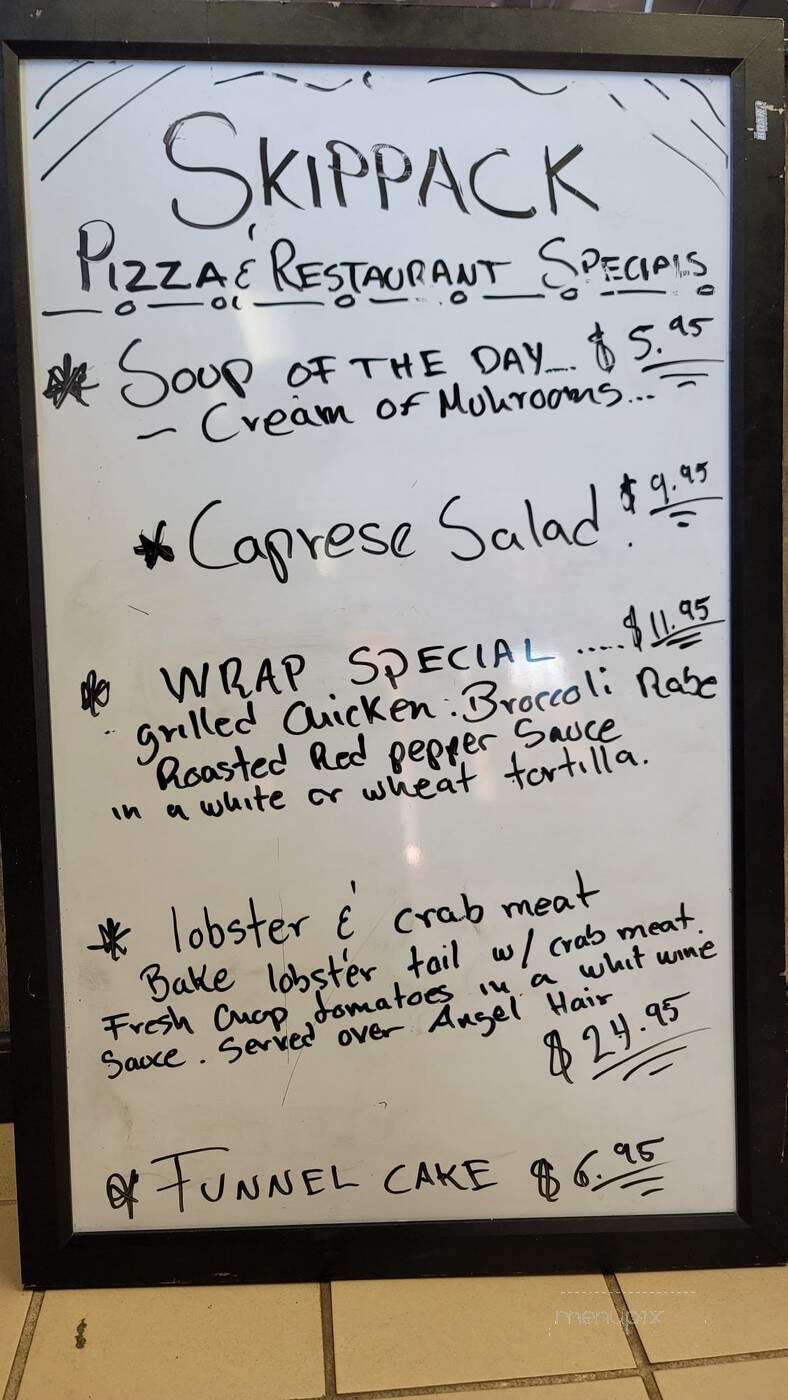 SKIPPACK
PIZZA & RESTAURANT SPECIALS
* SOUP OF THE DAY... $5.95
- Cream of Muhrooms...
* Caprese Salad $9.95
* WRAP SPECIAL ..... $11.95
grilled Chicken. Broccoli Rabe
Roasted Red pepper Sauce
in a white or wheat tortilla.
* lobster & crab meat
Bake lobster tail w/ crab meat.
Fresh Chop tomatoes in a whit wine
Sauce. Served over Angel Hair
$24.95
* FUNNEL CAKE $6.95
menupix